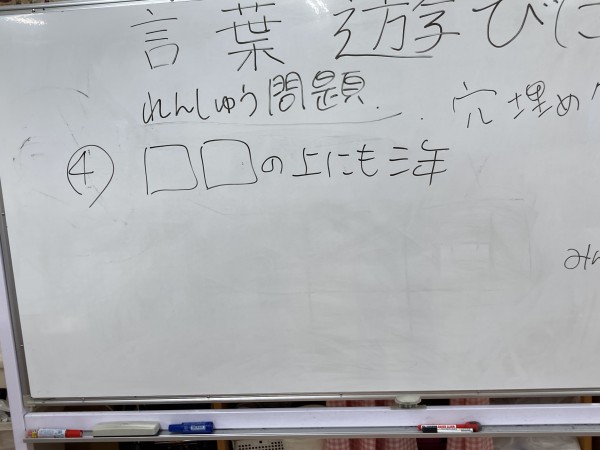 言葉遊びに
れんしゅう問題. . 穴埋め
④ □□の上にも三年
み